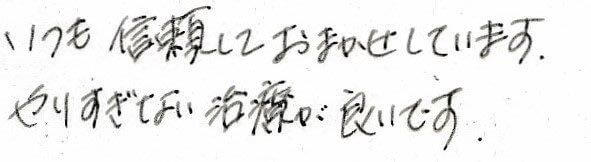 いつも信頼しておまかせしています.
やりすぎない治療が良いです.